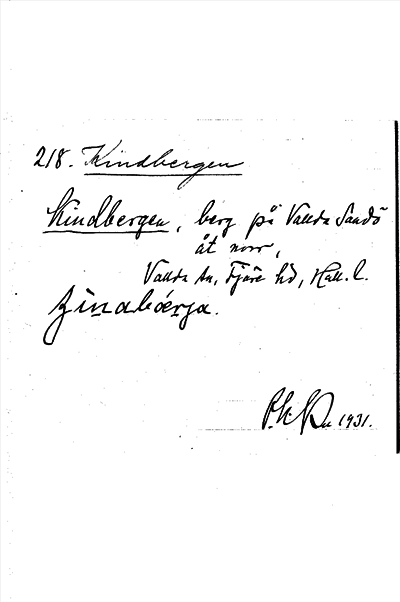 218. Kindbergen
Kindbergen, berg på Vallda Sandö
åt norr,
Vallda sn, Fjäre hd, Hall. l.
1931.